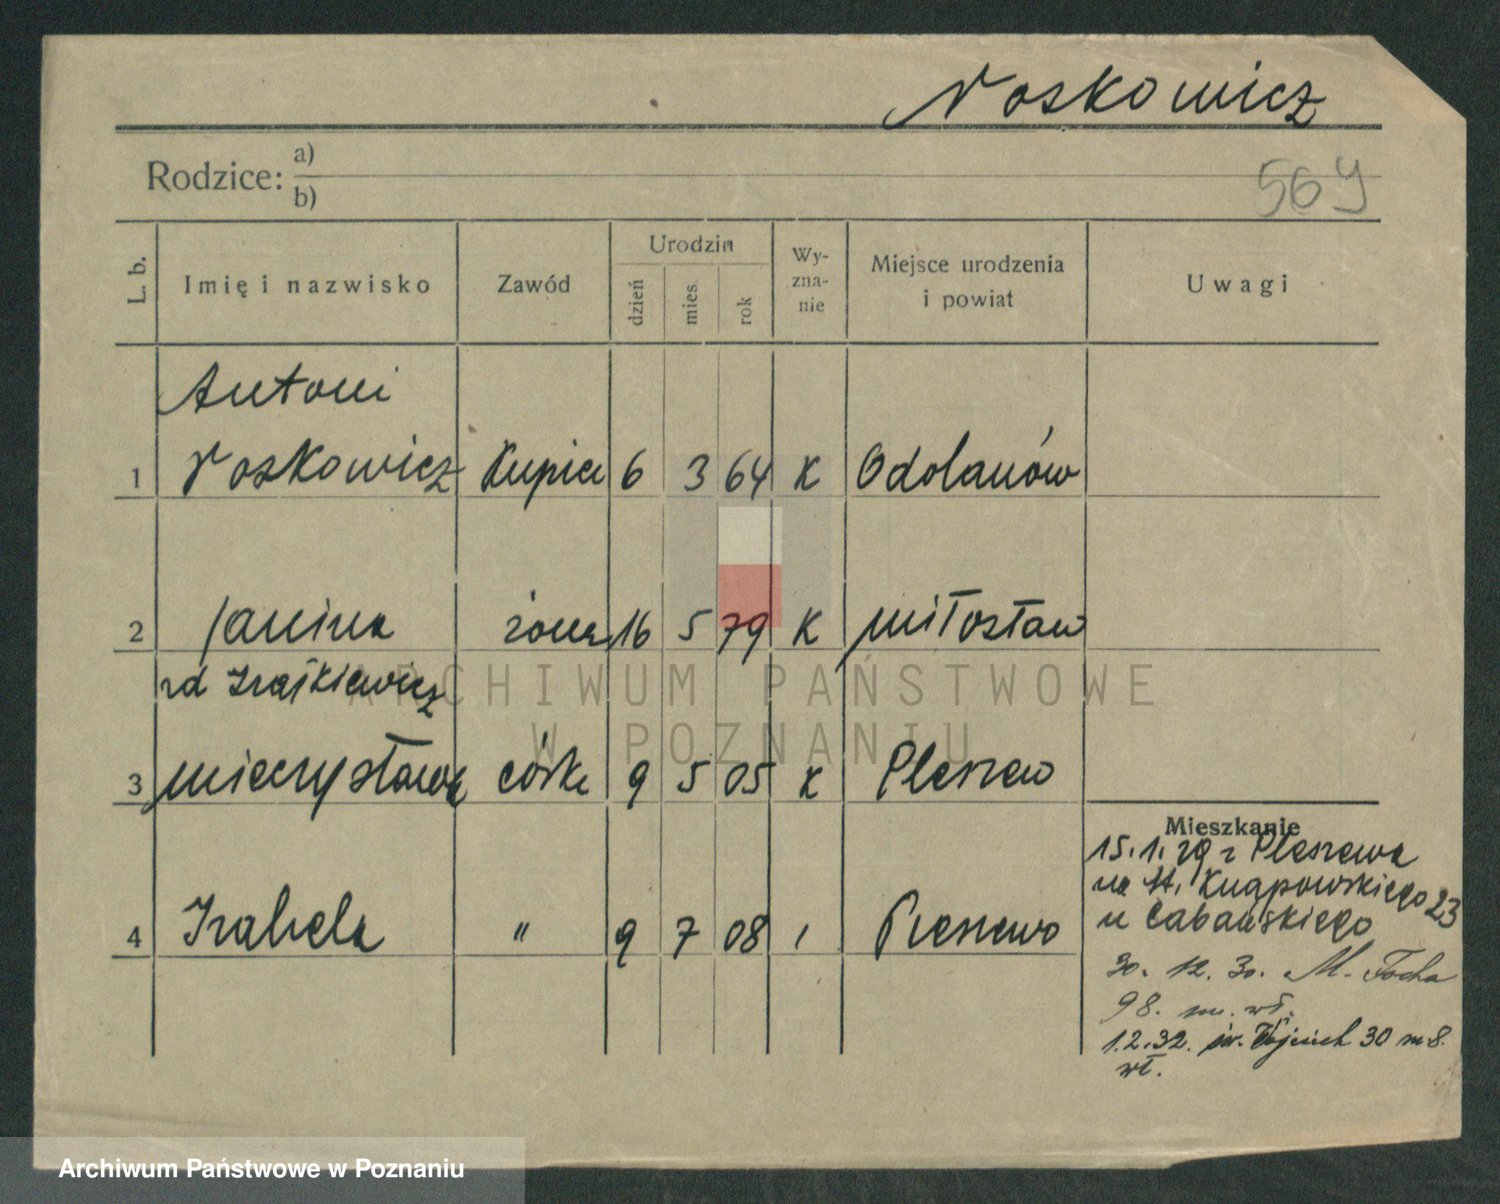 Noskowicz
Rodzice: a)
b)
569
L. b.
Imię i nazwisko
Zawód
Urodzin
dzień
mies.
rok
Wy-
zna-
nie
Miejsce urodzenia
i powiat
Uwagi
Antoni
1 Noskowicz Kupiec 6 3 64 K Odolanów
2 Janina żona 16 5 79 K Miłosław
rd
3 Mieczysława córka 9 5 05 K Pleszew
Mieszkanie
15.1.29 z Pleszewa
na st. Knapowskiego 23
4 Izabela " 9 7 08 Pleszewo
u Cabańskiego
30. 12. 30. M. Focha
98. m. wł.
1.2.32. św. Wojciech 30 m 8.
wł.
ARCHIWUM PAŃSTWOWE
W POZNANIU
Archiwum Państwowe w Poznaniu